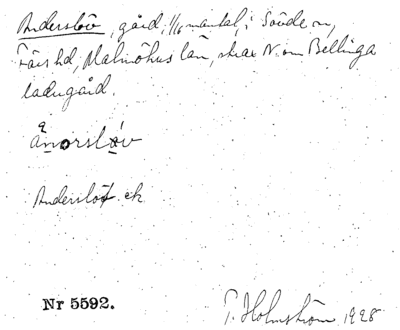 Anderslöv, gård, 1/16 mantal, i Sövde sn,
Färs hd, Malmöhus län, strax N. om Bellinga
ladugård.
ånorslöv
Anderslöf ek
Nr 5592.
T. Holmström 1928